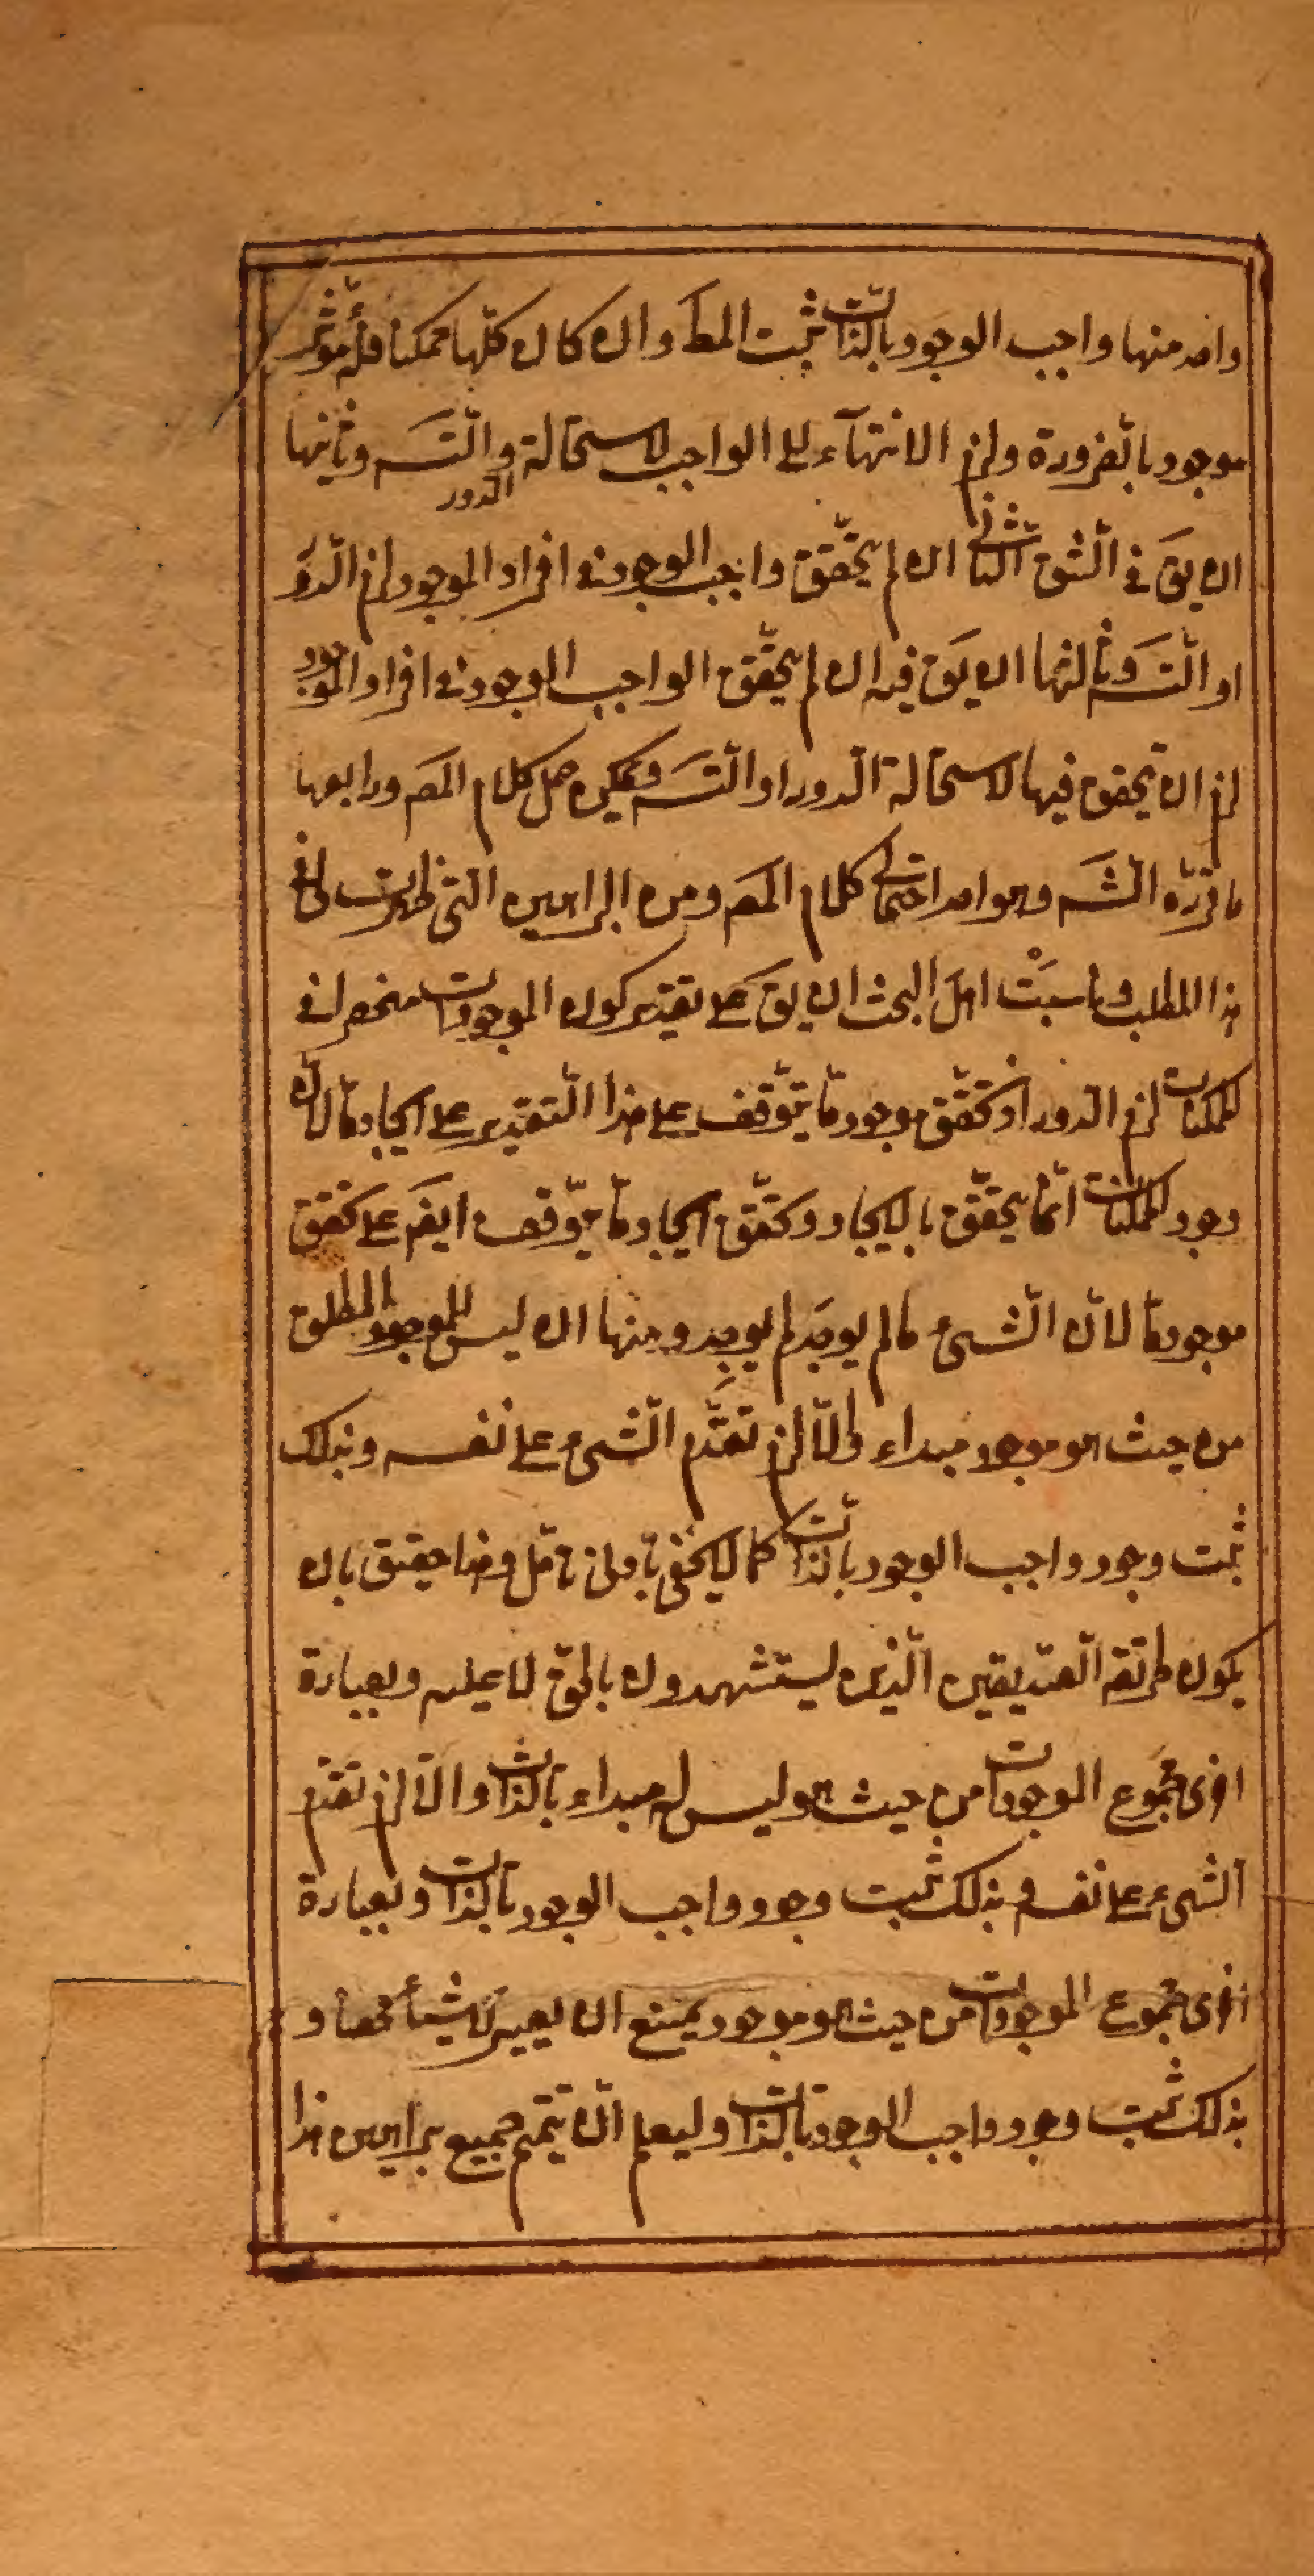 واحد منها واجب الوجود بالذات ثبت المط وان كان كلها ممكنا فله مؤثر
موجود بالضرورة ولزم الانتهآء الى الواجب لاستحالة الدور والتسـ وثانيها
ان يق فى الشق الثانى ان لم يتحقق واجب الوجود فى افراد الموجود لزم الدور
او التسـ وثالثها ان يق فيه ان لم يتحقق الواجب الوجود فى افراد الموجود
لزم ان يتحقق فيها لاستحالة الدور او التسـ فيمكن حمل كلام المصـ ورابعها
ما قرره الشـ وهو احد احتمالى كلام المصـ ومن البراهين التى ظهرت لى فى
هذا المطلب وناسبت اهل البحث ان يق على تقدير كون الموجودات منحصرا فى
الممكنات لزم الدور اذ تحقق موجود ما يتوقف على هذا التقدير على ايجاد ما لان
وجود الممكنات انما يتحقق بالايجاد وتحقق ايجاد ما يتوقف ايضـ على تحقق
موجود ما لان الشىء ما لم يوجد لم يوجد ومنها ان ليس للموجود المطلق
من حيث هو موجود مبداء والّا لزم تقدم الشىء على نفسه وبذلك
ثبت وجود واجب الوجود بالذات كما لا يخفى بادنى تامّل وهذا حقيق بان
يكون طريقة الصديقين الذين يستشهدون بالحق لا عليه وبعبارة
اخرى مجموع الموجودات من حيث هو ليس له مبداء بالذات والّا لزم تقدم
الشىء على نفسه وبذلك ثبت وجود واجب الوجود بالذات وبعبارة
اخرى مجموع الموجودات من حيث هو موجود يمتنع ان يصير لا شيئا محضا و
بذلك ثبت وجود واجب الوجود بالذات وليعلم ان تتميم جميع براهين هذا